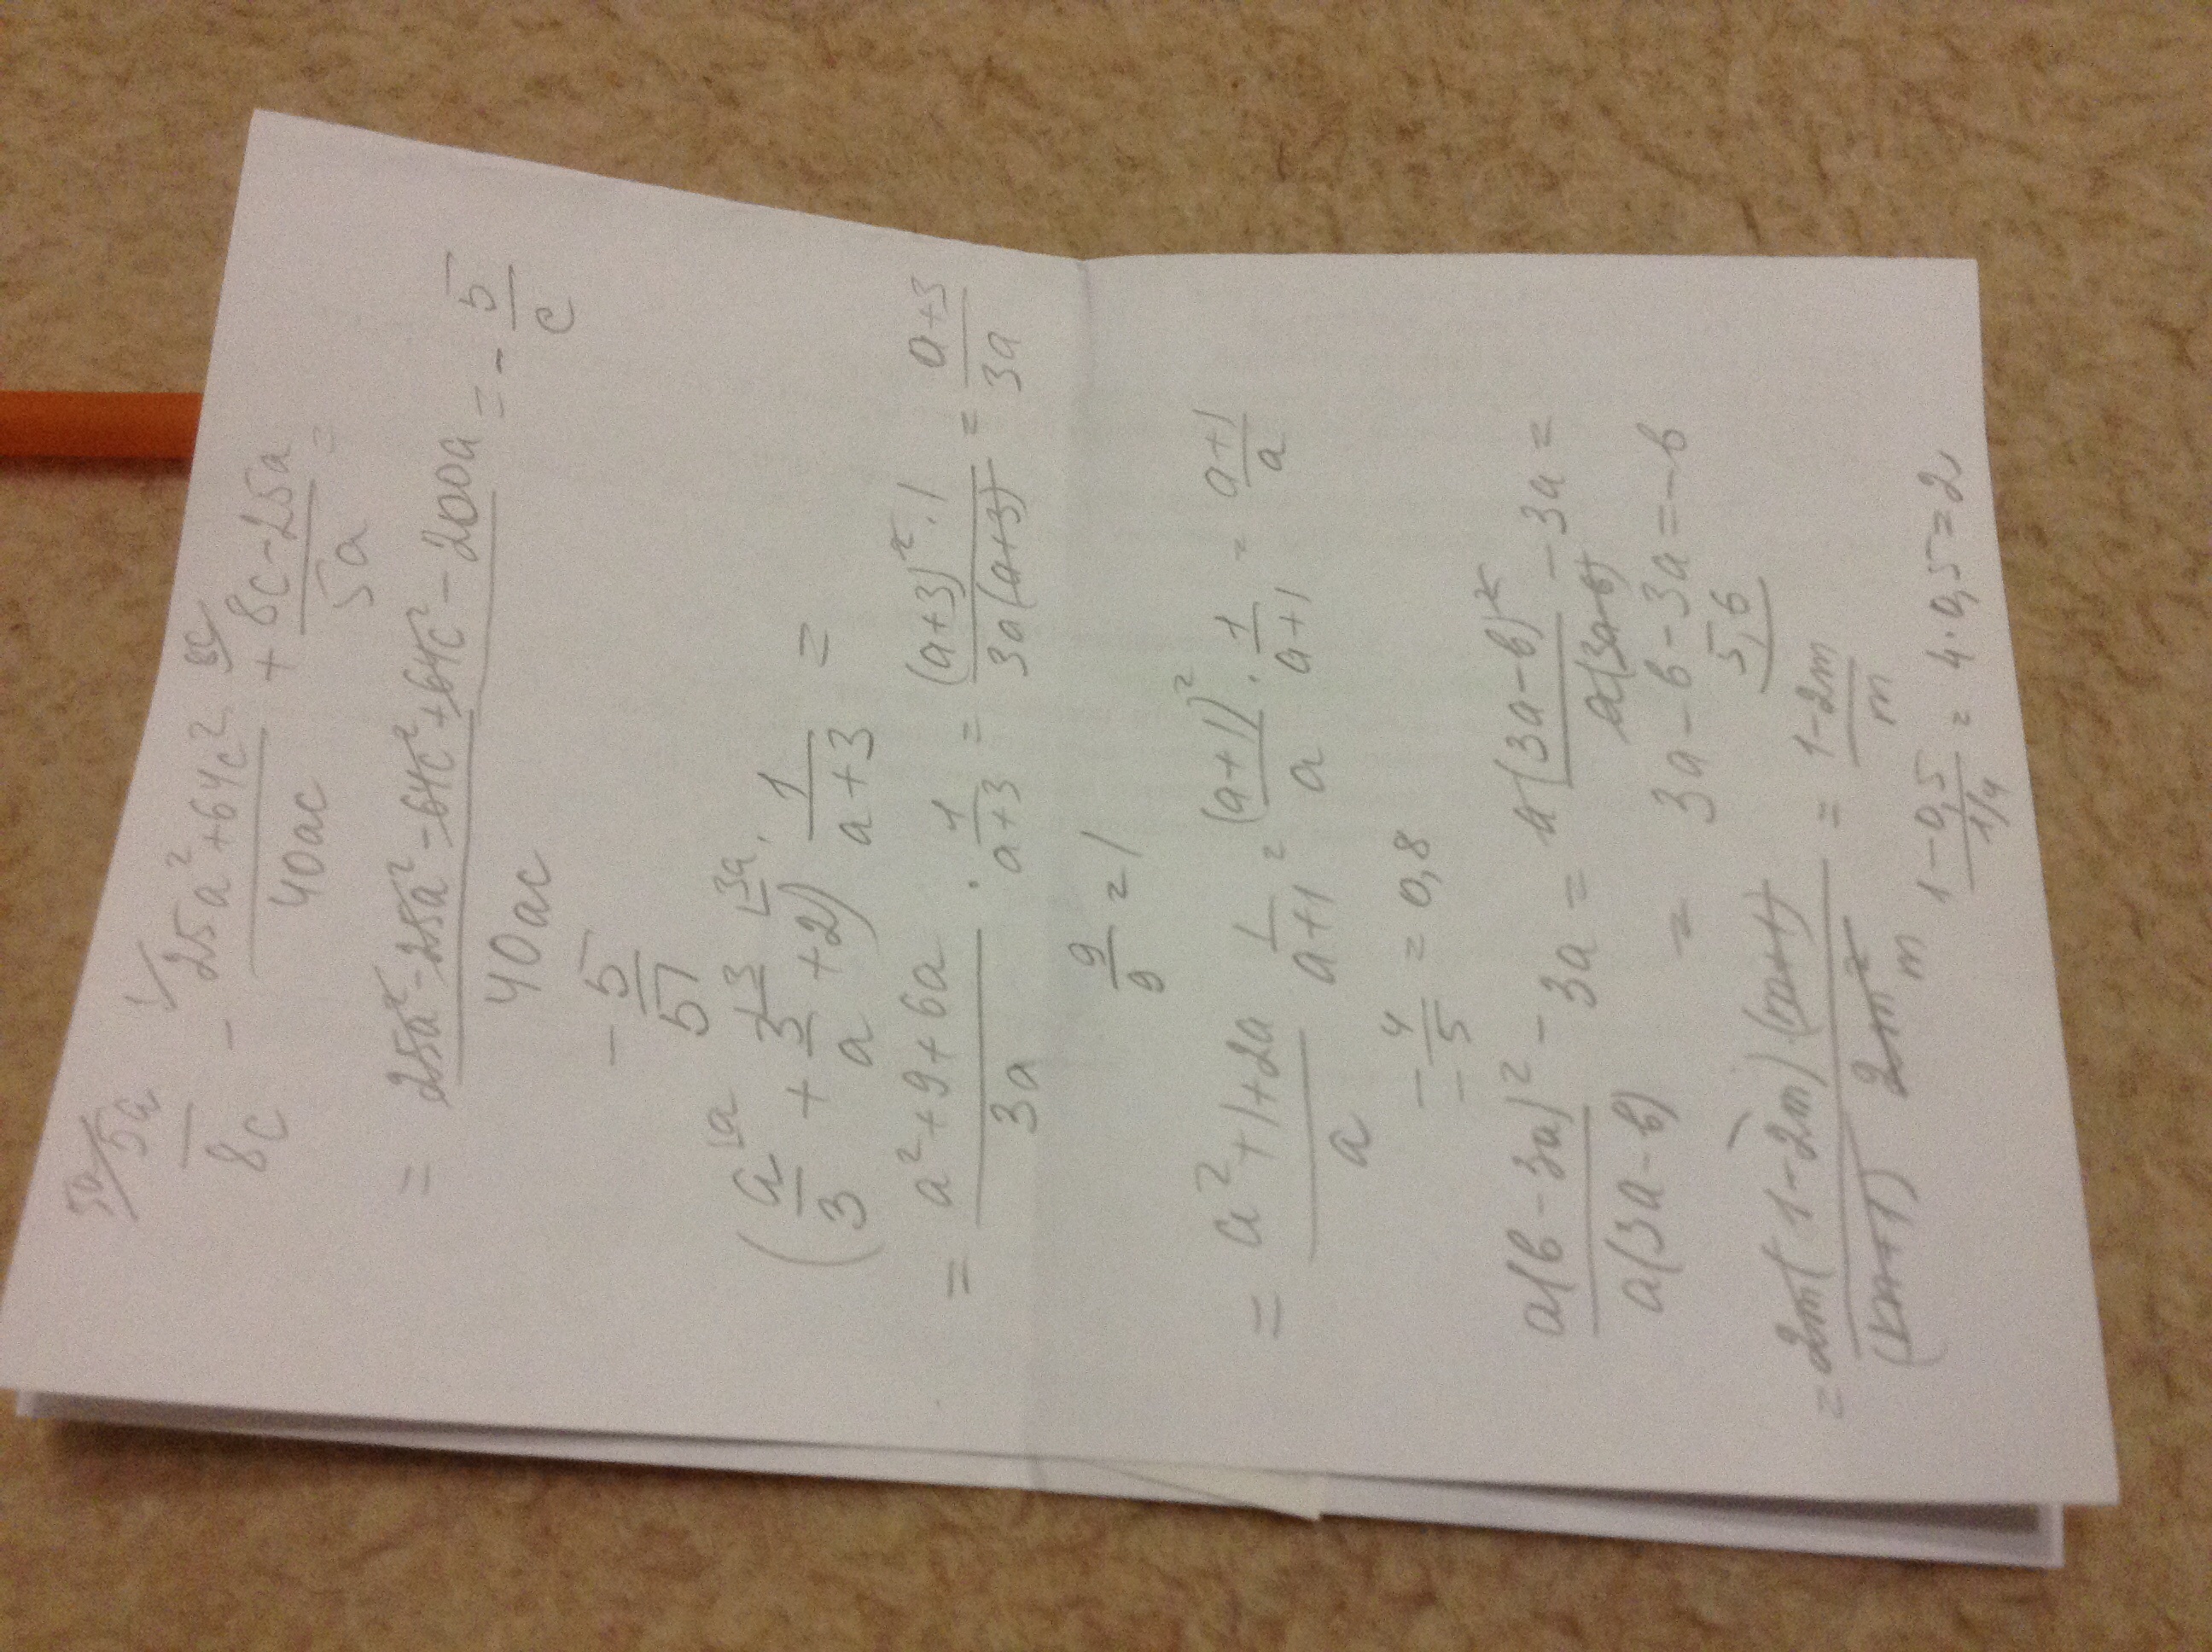 5a/ 5a/8c - 1/ (25a²+64c²)/40ac + 8c/ (8c-25a)/5a =
= (25a²-25a²-64c²+64c²-200a)/40ac = -5/c
-5/51
(a/3 ⌊a + 3/a ⌊3 + 2 ⌊3a) · 1/(a+3) =
= (a²+9+6a)/3a · 1/(a+3) = ((a+3)²·1)/(3a(a+3)) = (a+3)/3a
9/9 = 1
= (a²+1+2a)/a · 1/(a+1) = (a+1)²/a · 1/(a+1) = (a+1)/a
-4/-5 = 0,8
a(b-3a)²/a(3a-b) - 3a = a(3a-b)²/a(3a-b) - 3a =
= 3a-b-3a = -b
5,6
= 2m(1-2m)(m+1)/((m+1) 2m²) = (1-2m)/m
m
(1-0,5)/(1/4) = 4·0,5=2